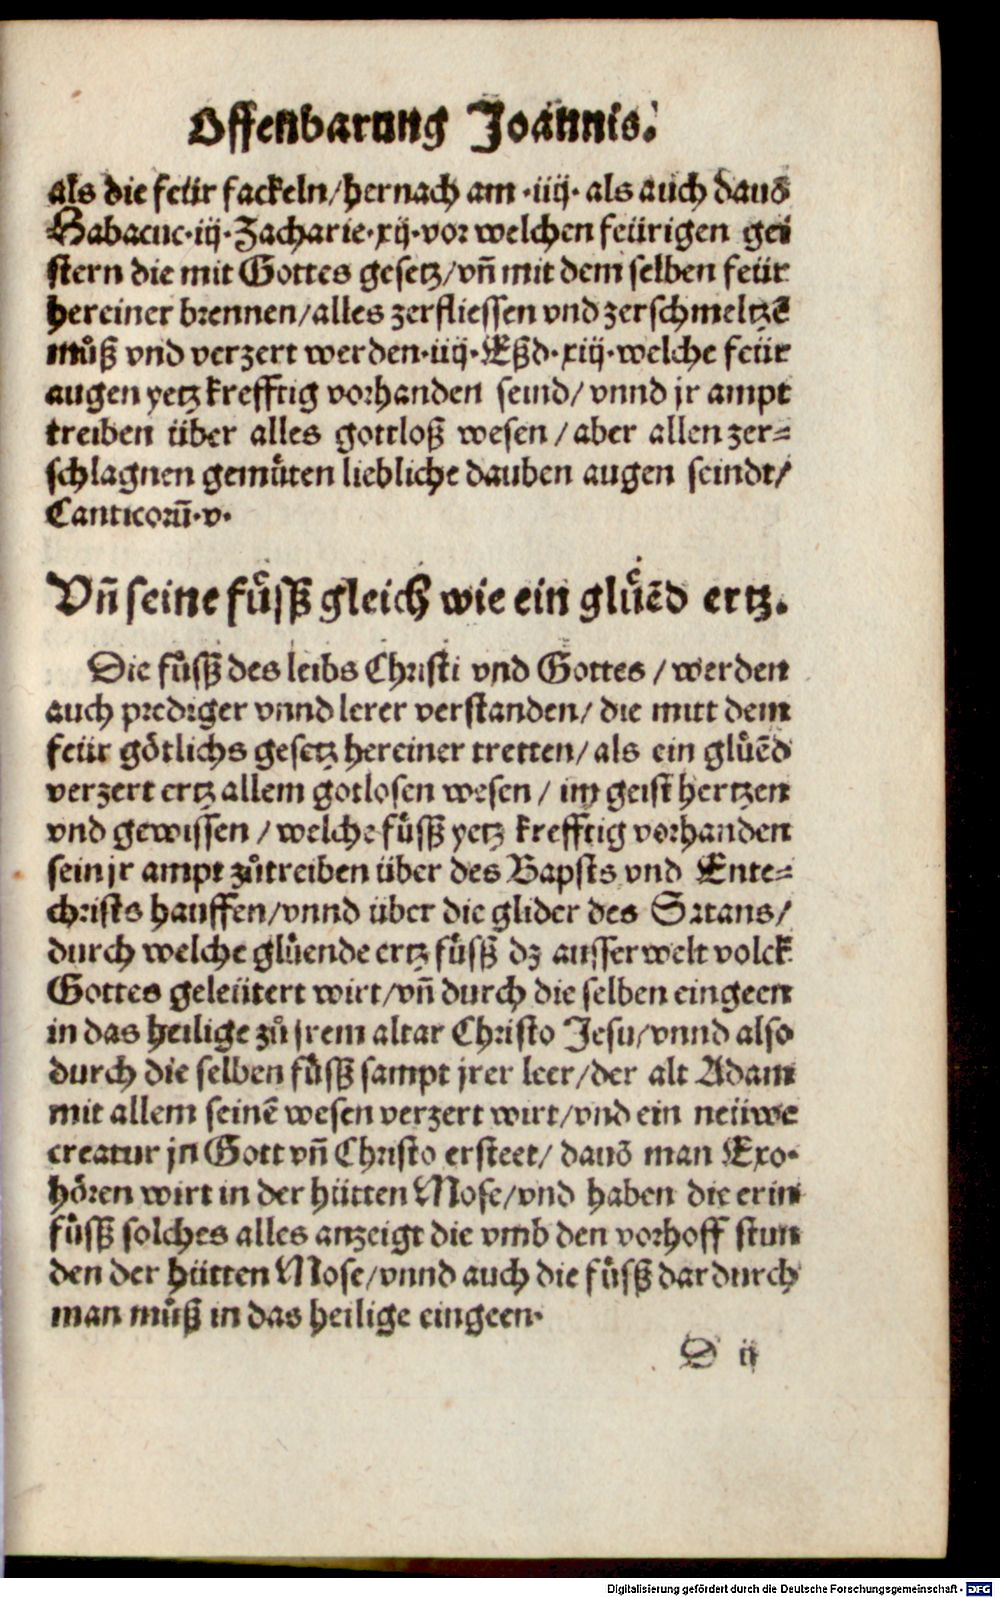 Offenbarung Joannis.
als die feür fackeln/hernach am ·iiij· als auch dauō
Habacuc·iij·Zacharie·xij·vor welchen feürigen gei
stern die mit Gottes gesetz/vñ mit dem selben feür
hereiner brennen/alles zerfliessen vnd zerschmeltzē
muͦß vnd verzert werden·iiij·Eßd·xiij·welche feür
augen yetz krefftig vorhanden seind/vnnd jr ampt
treiben über alles gottloß wesen/aber allen zer⸗
schlagnen gemuͤten liebliche dauben augen seindt/
Canticorū·v·
Vñ seine fuͤsß gleich wie ein gluͤēd ertz.
Die fuͤsß des leibs Christi vnd Gottes/werden
auch prediger vnnd lerer verstanden/die mitt dem
feür goͤtlichs gesetz hereiner tretten/als ein gluͤēd
verzert ertz allem gotlosen wesen/im geist hertzen
vnd gewissen/welche fuͤsß yetz krefftig vorhanden
sein jr ampt zuͦtreiben über des Bapsts vnd Ente⸗
christs hauffen/vnnd über die glider des Satans/
durch welche gluͤende ertz fuͤsß dz ausserwelt volck
Gottes geleütert wirt/vñ durch die selben eingeen
in das heilige zuͦ jrem altar Christo Jesu/vnnd also
durch die selben fuͤsß sampt jrer leer/der alt Adam
mit allem seinē wesen verzert wirt/vnd ein neüwe
creatur jn Gott vñ Christo ersteet/dauō man Exo·
hoͤren wirt in der hütten Mose/vnd haben die erin
fuͤsß solches alles anzeigt die vmb den vorhoff stun
den der hütten Mose/vnnd auch die fuͤsß dardurch
man muͦß in das heilige eingeen·
D ij
Digitalisierung gefördert durch die Deutsche Forschungsgemeinschaft - DFG